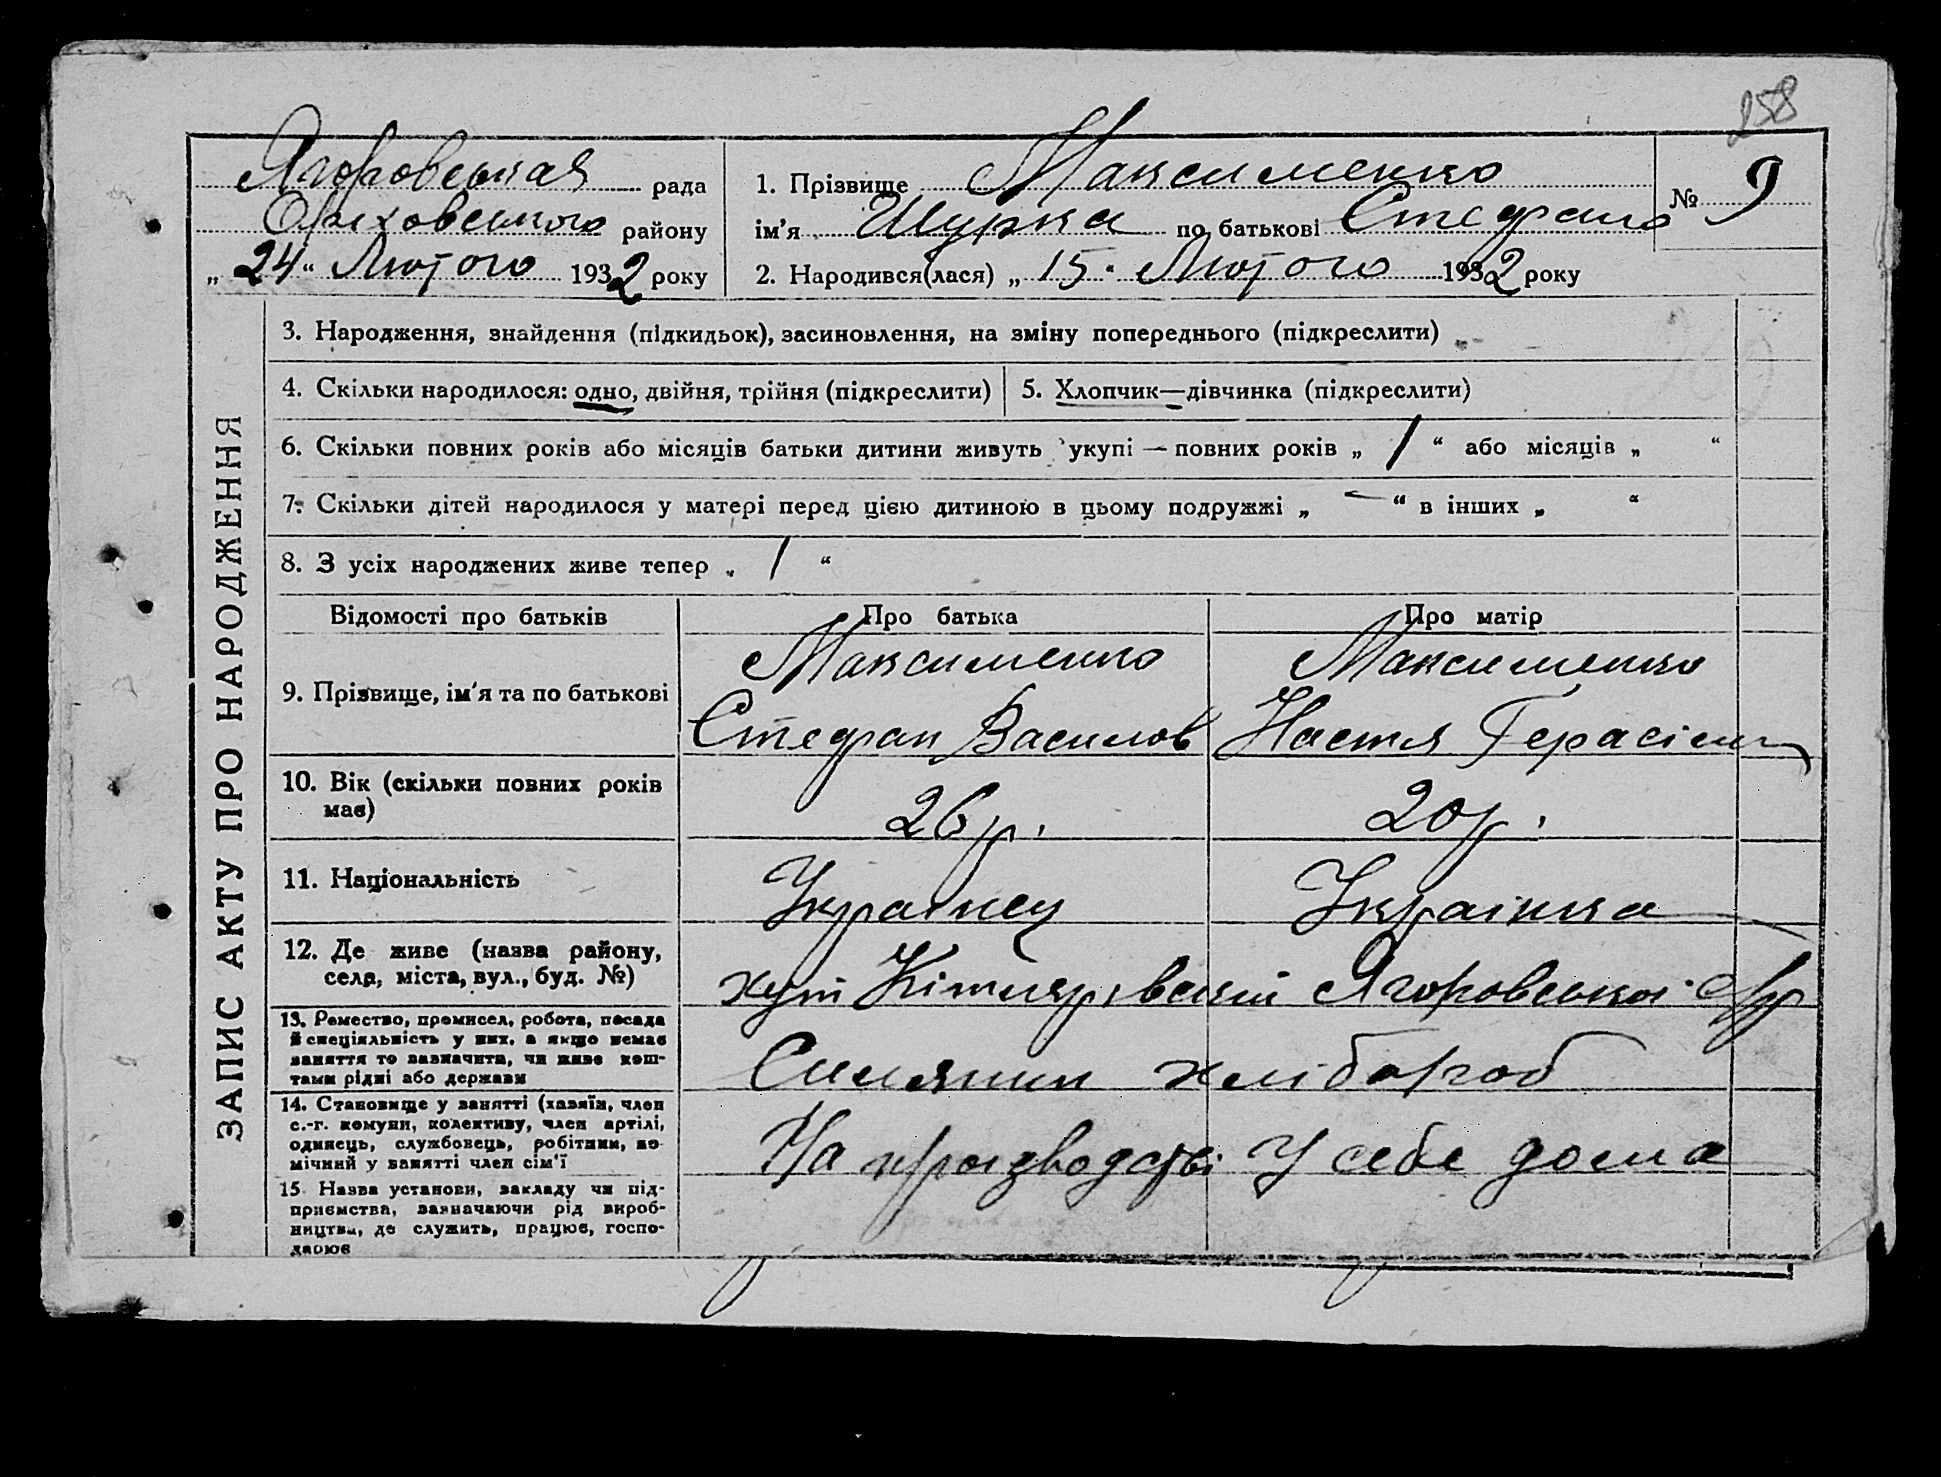 258
Ягоровськая рада
Оріховського району
„ 24 “ Лютого 1932 року
1. Прізвище Максименко
ім'я Шурка по батькові Стефано
№ 9
2. Народився(лася) „ 15 “ Лютого 1932 року
ЗАПИС АКТУ ПРО НАРОДЖЕННЯ
3. Народження, знайдення (підкидьок), засиновлення, на зміну попереднього (підкреслити)
4. Скільки народилося: одно, двійня, трійня (підкреслити)
5. Хлопчик—дівчинка (підкреслити)
6. Скільки повних років або місяців батьки дитини живуть укупі — повних років „ 1 “ або місяців „ “
7. Скільки дітей народилося у матері перед цією дитиною в цьому подружжі „ — “ в інших „ “
8. З усіх народжених живе тепер „ 1 “
Відомості про батьків
Про батька
Про матір
9. Прізвище, ім'я та по батькові
Максименко
Стефан Василов
Максименко
Настя Герасім
10. Вік (скільки повних років
має)
26 р.
20 р.
11. Національність
Українец
Українка
12. Де живе (назва району,
села, міста, вул., буд. №)
хут Ягоровської с/р
13. Ремество, промисел, робота, посада
й спеціяльність у них, а якщо немає
заняття то зазначити, чи живе кош-
тами рідні або держави
Силянин хлібороб
14. Становище у занятті (хазяїн, член
с.-г. комуни, колективу, член артілі,
одинець, службовець, робітник, по-
мічний у занятті член сім'ї
На производстві
У себе дома
15. Назва установи, закладу чи під-
приємства, зазначаючи рід вироб-
ництва, де служить, працює, госпо-
дарює